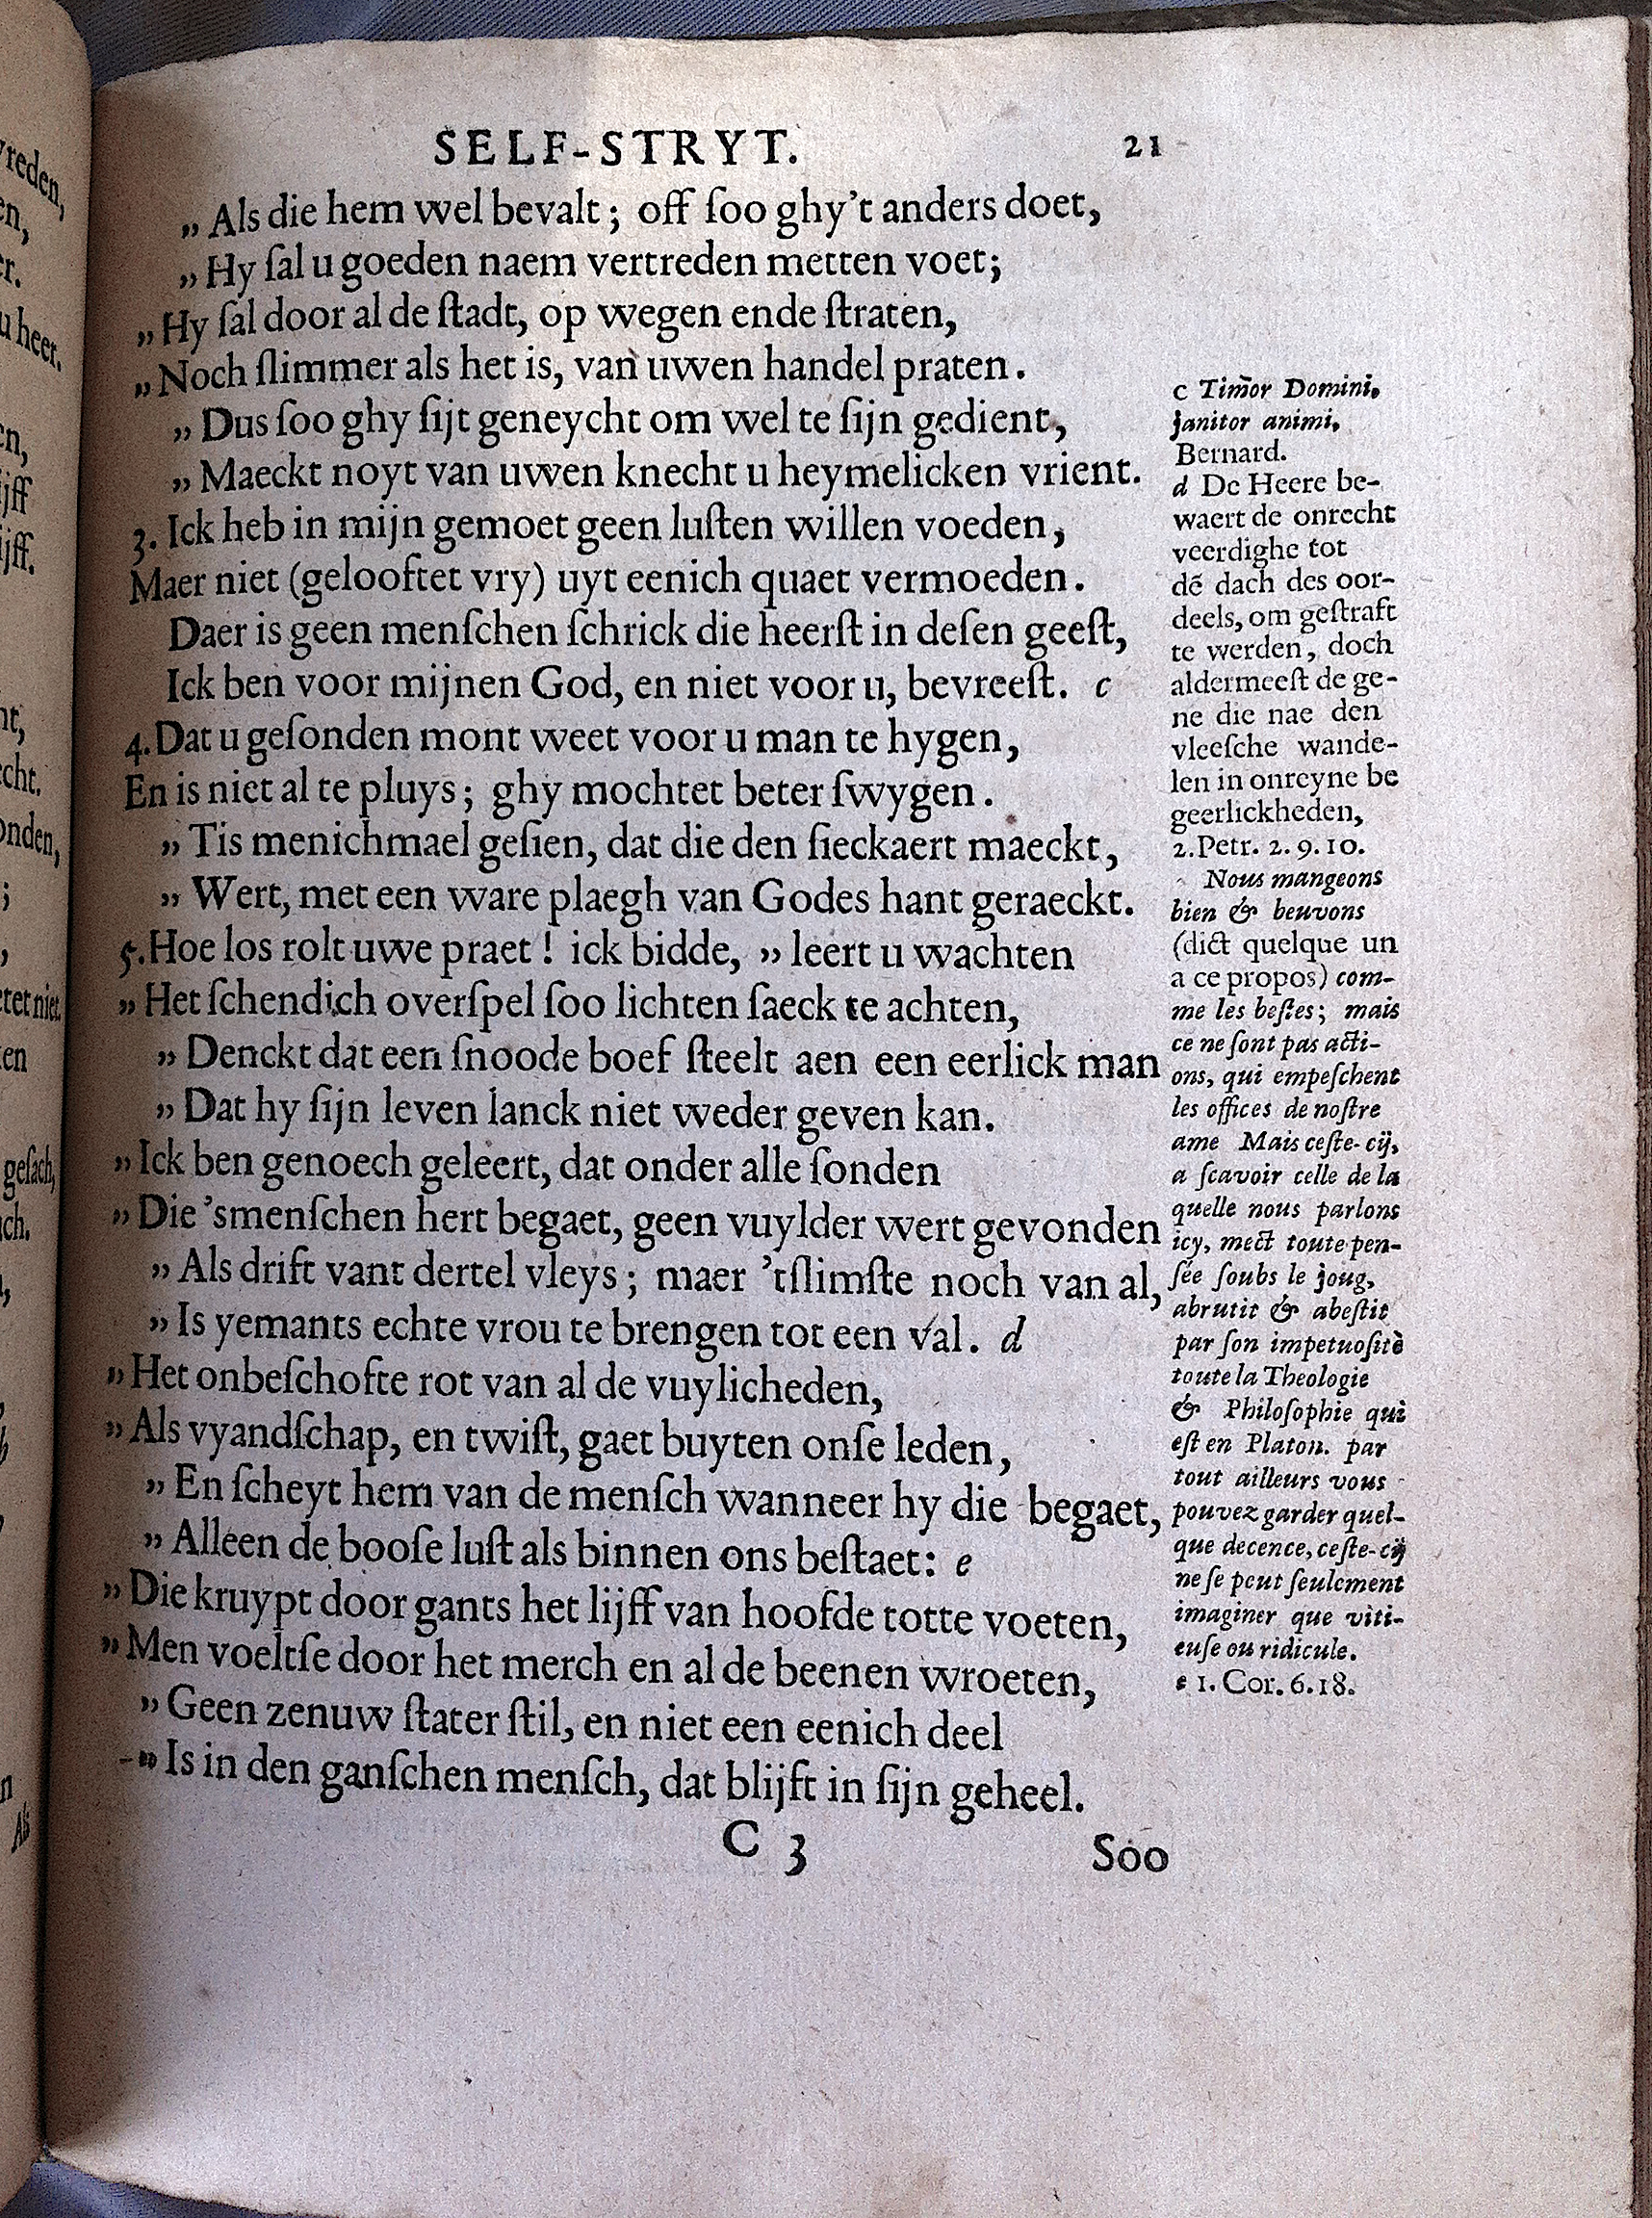 SELF-STRYT. 21
„ Als die hem wel bevalt; off ſoo ghy't anders doet,
„ Hy ſal u goeden naem vertreden metten voet;
„ Hy ſal door al de ſtadt, op wegen ende ſtraten,
„ Noch ſlimmer als het is, van uwen handel praten.
„ Dus ſoo ghy ſijt geneycht om wel te ſijn gedient,
„ Maeckt noyt van uwen knecht u heymelicken vrient.
3. Ick heb in mijn gemoet geen luſten willen voeden,
Maer niet (gelooftet vry) uyt eenich quaet vermoeden.
Daer is geen menſchen ſchrick die heerſt in deſen geeſt,
Ick ben voor mijnen God, en niet voor u, bevreeſt. c
4. Dat u geſonden mont weet voor u man te hygen,
En is niet al te pluys; ghy mochtet beter ſwygen.
„ Tis menichmael geſien, dat die den ſieckaert maeckt,
„ Wert, met een ware plaegh van Godes hant geraeckt.
5. Hoe los rolt uwe praet! ick bidde, „ leert u wachten
„ Het ſchendich overſpel ſoo lichten ſaeck te achten,
„ Denckt dat een ſnoode boef ſteelt aen een eerlick man
„ Dat hy ſijn leven lanck niet weder geven kan.
„ Ick ben genoech geleert, dat onder alle ſonden
„ Die 'smenſchen hert begaet, geen vuylder wert gevonden
„ Als drift vant dertel vleys; maer 'tſlimſte noch van al,
„ Is yemants echte vrou te brengen tot een val. d
„ Het onbeſchofte rot van al de vuylicheden,
„ Als vyandſchap, en twiſt, gaet buyten onſe leden,
„ En ſcheyt hem van de menſch wanneer hy die begaet,
„ Alleen de booſe luſt als binnen ons beſtaet: e
„ Die kruypt door gants het lijff van hoofde totte voeten,
„ Men voeltſe door het merch en al de beenen wroeten,
„ Geen zenuw ſtater ſtil, en niet een eenich deel
„ Is in den ganſchen menſch, dat blijft in ſijn geheel.
C 3 Soo
c Timor Domini,
janitor animi,
Bernard.
d De Heere be-
waert de onrecht
veerdighe tot
dē dach des oor-
deels, om geſtraft
te werden, doch
aldermeeſt de ge-
ne die nae den
vleeſche wande-
len in onreyne be
geerlickheden,
2. Petr. 2. 9. 10.
Nous mangeons
bien & beuvons
(dict quelque un
a ce propos) com-
me les beſtes; mais
ce ne ſont pas acti-
ons, qui empeſchent
les offices de noſtre
ame Mais ceſte-cij,
a ſcavoir celle de la
quelle nous parlons
icy, mect toute pen-
ſée ſoubs le joug,
abrutit & abeſtit
par ſon impetuoſitè
toute la Theologie
& Philoſophie qui
eſt en Platon. par
tout ailleurs vous
pouvez garder quel-
que decence, ceſte-cij
ne ſe peut ſeulement
imaginer que viti-
euſe ou ridicule.
e 1. Cor. 6. 18.